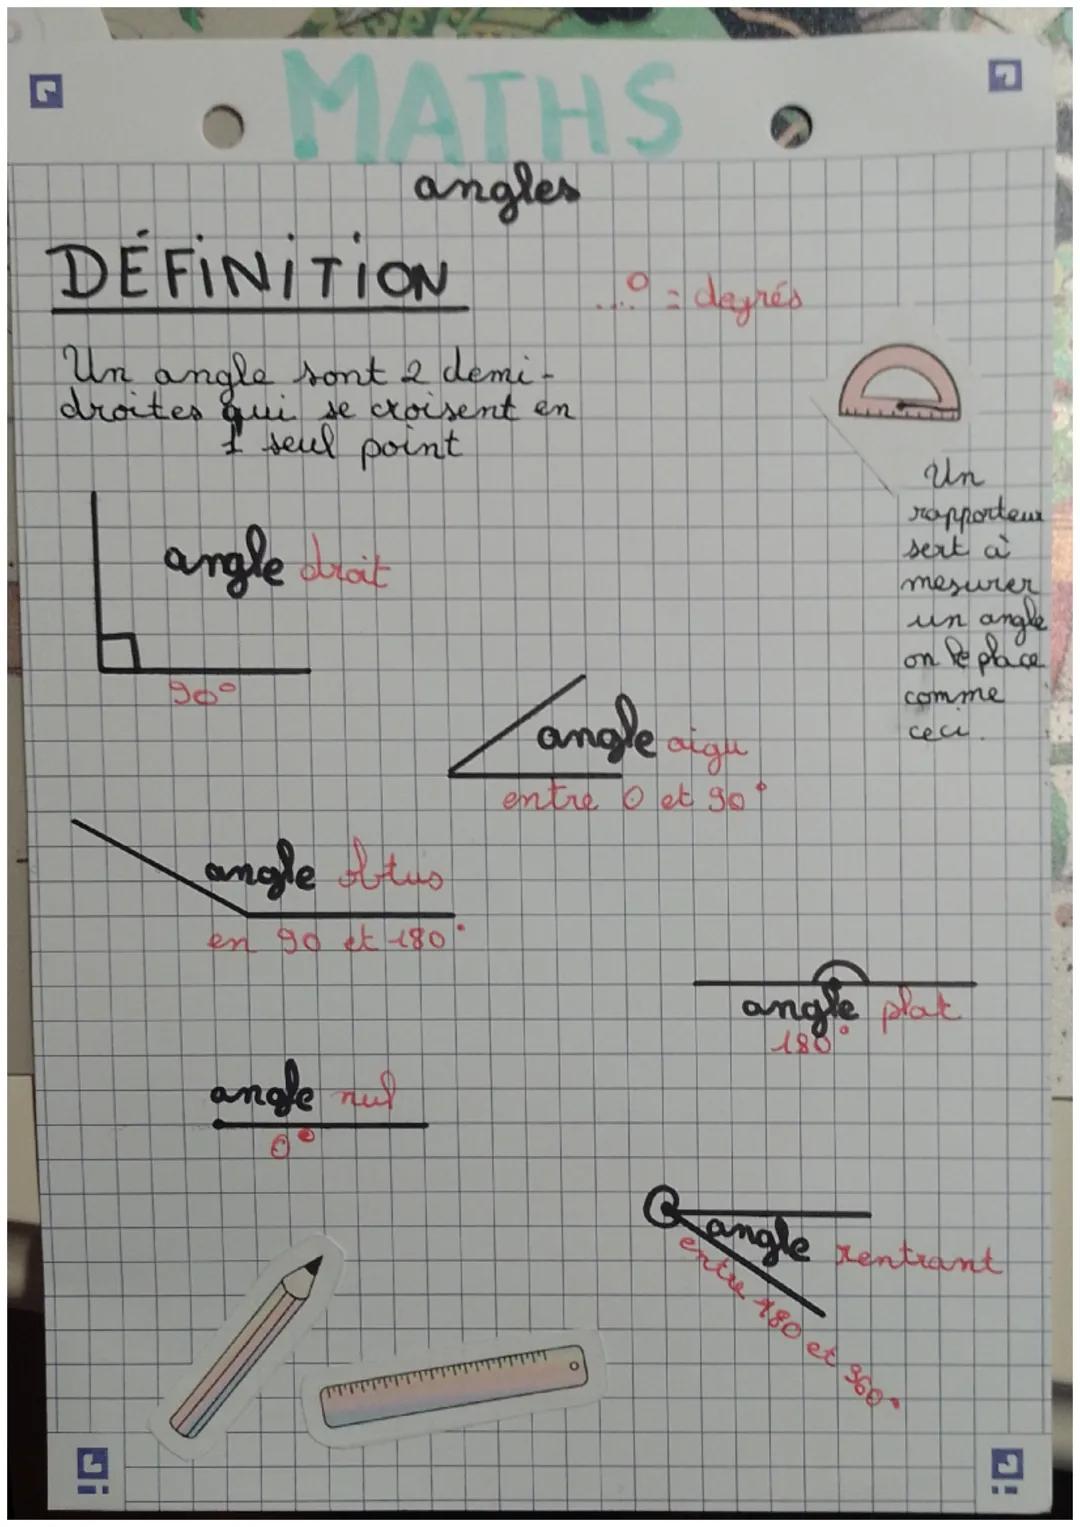 MATHS
angles
DÉFINITION
...° = degrés
Un angle sont 2 demi-
droites qui se croisent en
1 seul point
Un
rapporteur
sert à
mesurer
un angle
on le place
comme
ceci.
angle droit
90°
angle aigu
entre 0 et 90°
angle obtus
en 90 et 180°
angle plat
180°
angle nul
0°
angle rentrant
entre 180 et 360°